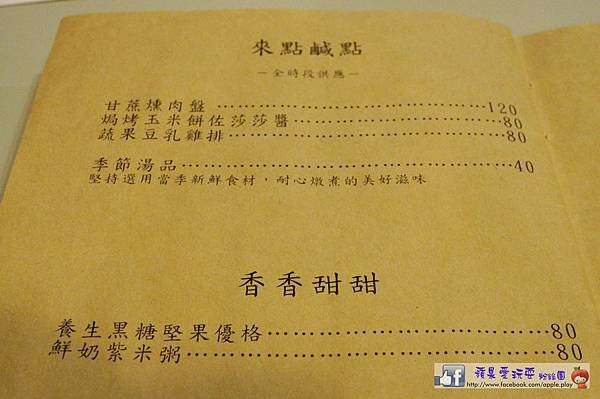 來點鹹點
－全時段供應－
甘蔗燻肉盤 ……………………………120
焗烤玉米餅佐莎莎醬……………………80
蔬果豆乳雞排……………………………80
季節湯品…………………………………40
堅持選用當季新鮮食材，耐心燉煮的美好滋味
香香甜甜
養生黑糖堅果優格………………………80
鮮奶紫米粥………………………………80
蘋果愛玩耍 粉絲團
http://www.facebook.com/apple.play